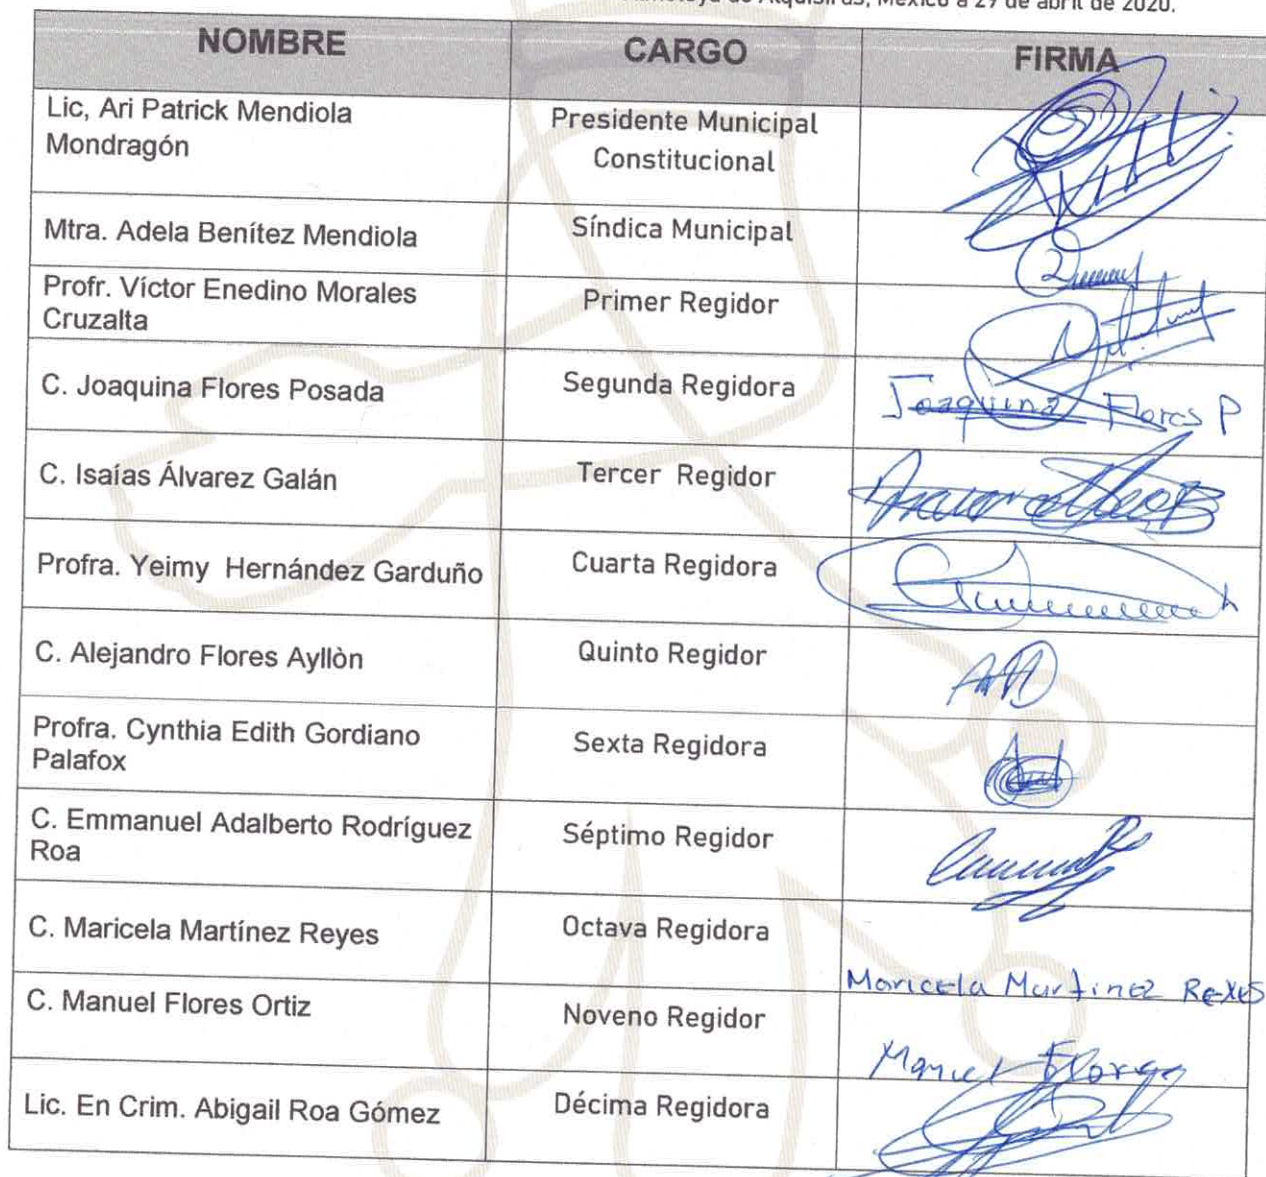 de Alquisiras, México a 29 de abril de 2020.
NOMBRE CARGO FIRMA
Lic, Ari Patrick Mendiola
Mondragón
Presidente Municipal
Constitucional
Mtra. Adela Benítez Mendiola Síndica Municipal
Profr. Víctor Enedino Morales
Cruzalta
Primer Regidor
C. Joaquina Flores Posada Segunda Regidora Joaquina Flores P
C. Isaías Álvarez Galán Tercer Regidor
Profra. Yeimy Hernández Garduño Cuarta Regidora
C. Alejandro Flores Ayllòn Quinto Regidor
Profra. Cynthia Edith Gordiano
Palafox
Sexta Regidora
C. Emmanuel Adalberto Rodríguez
Roa
Séptimo Regidor
C. Maricela Martínez Reyes Octava Regidora Maricela Martinez Reyes
C. Manuel Flores Ortiz Noveno Regidor Manuel Flores
Lic. En Crim. Abigail Roa Gómez Décima Regidora